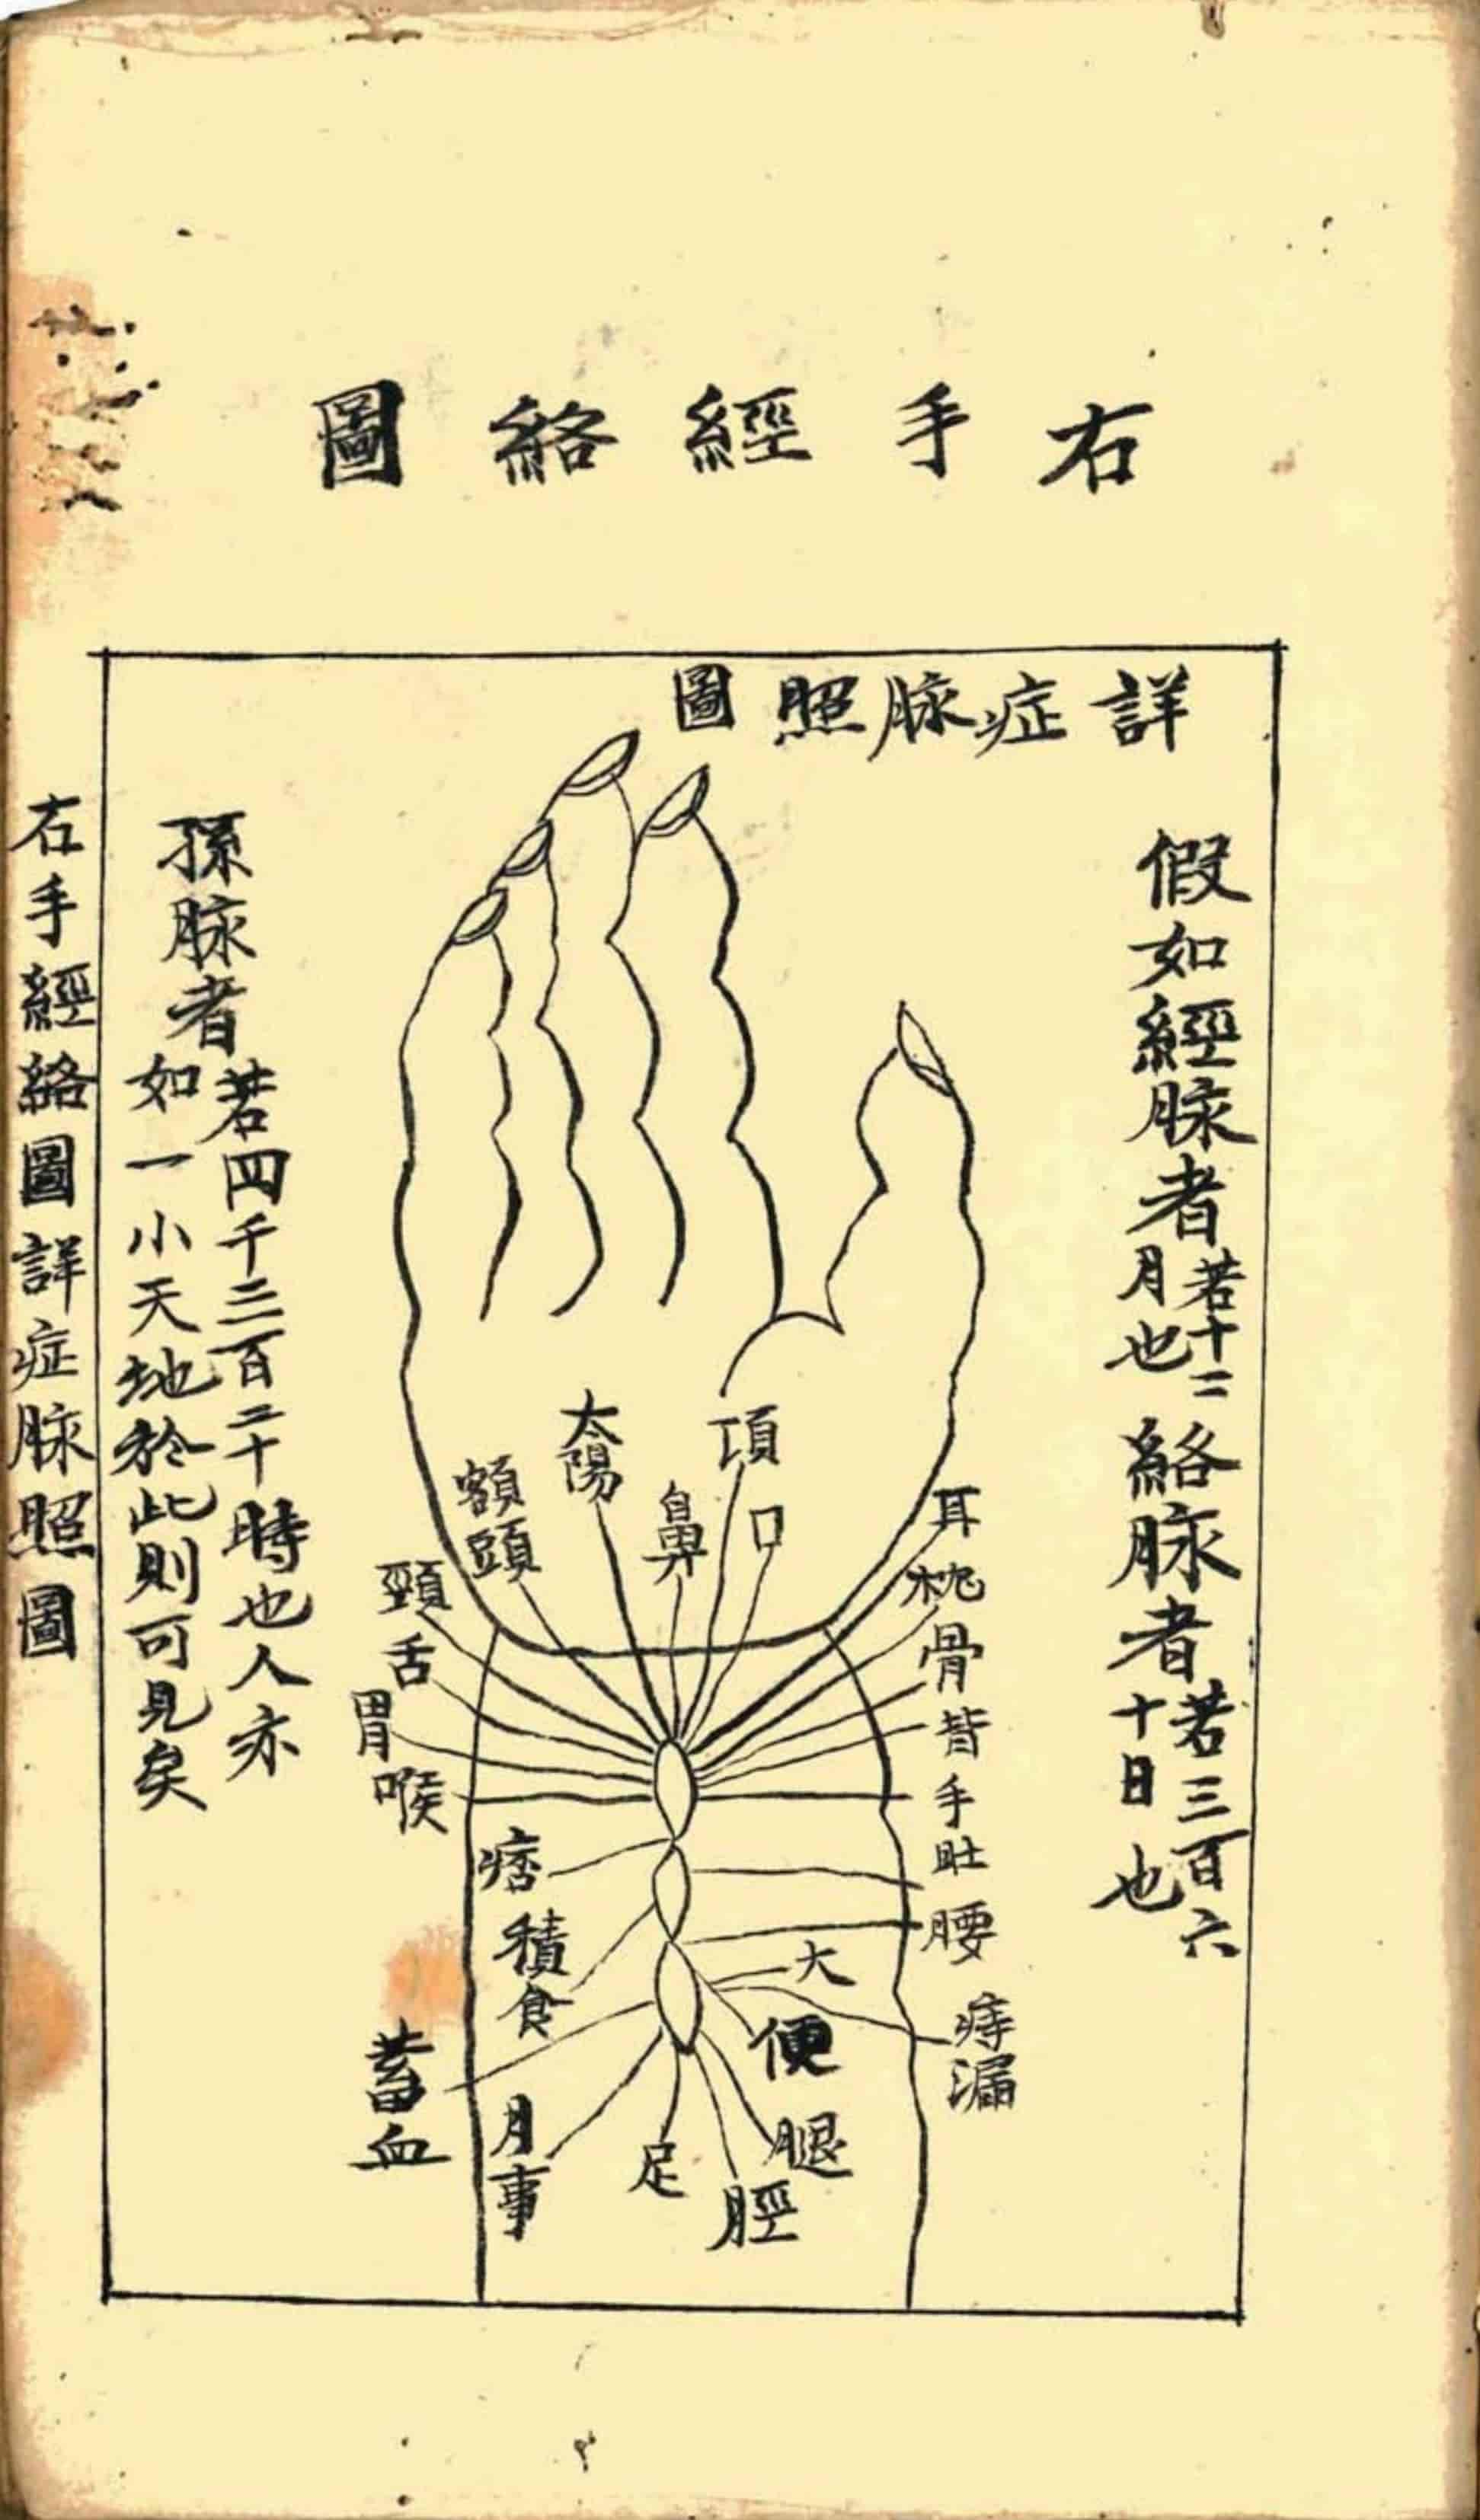 右手經絡圖
詳症脉照圖
假如經脉者若十二月也絡脉者若三百六十日也
耳
枕骨
背
手
肚
腰
痔漏
項
口
鼻
太陽
額頭
頸
舌
胃
喉
痞
積食
蓄血
月事
足
脛
腿
大便
孫脉者若四千三百二十時也人亦如一小天地於此則可見矣
右手經絡圖詳症脉照圖